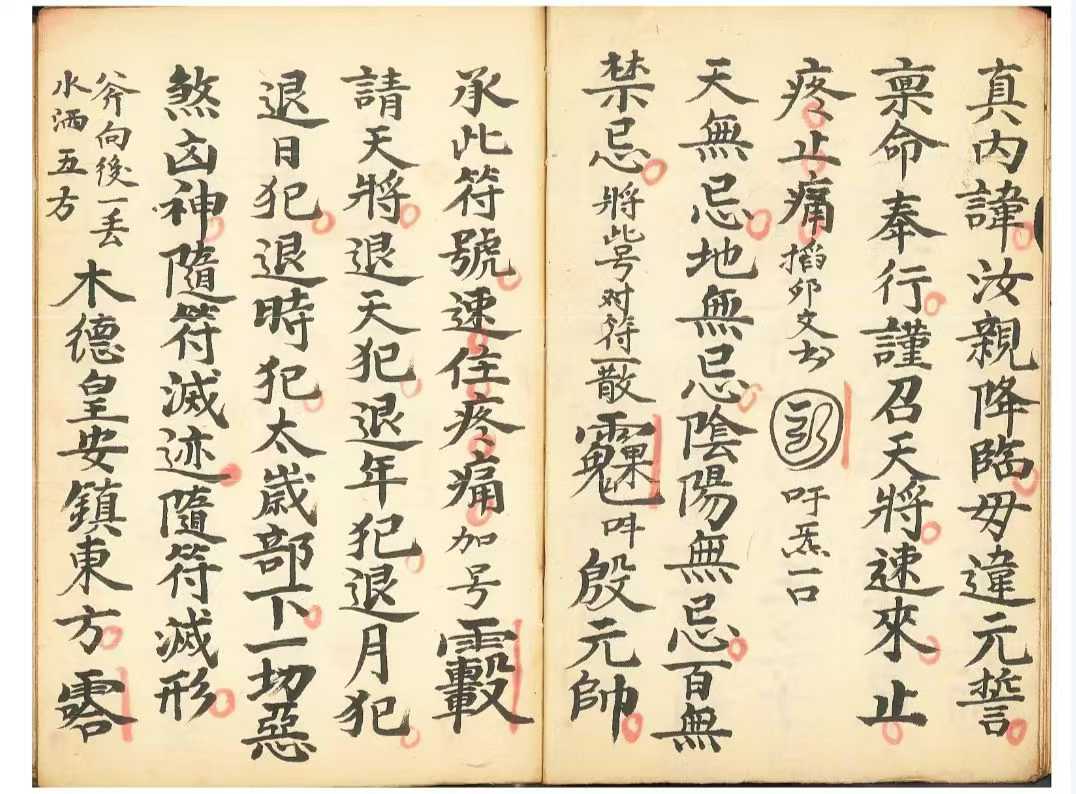 真内諱汝親降臨毋違元誓
禀命奉行謹召天將速來止
疼止痛搯卯文 吁炁一口
天無忌地無忌陰陽無忌百無
禁忌將此号对符一散 吽殷元帥
承此符號速住疼痛加号
請天將退天犯退年犯退月犯
退日犯退時犯太歲部下一切惡
煞凶神隨符滅迹隨符滅形
斧向後一丢
水洒五方
木德皇安鎮東方